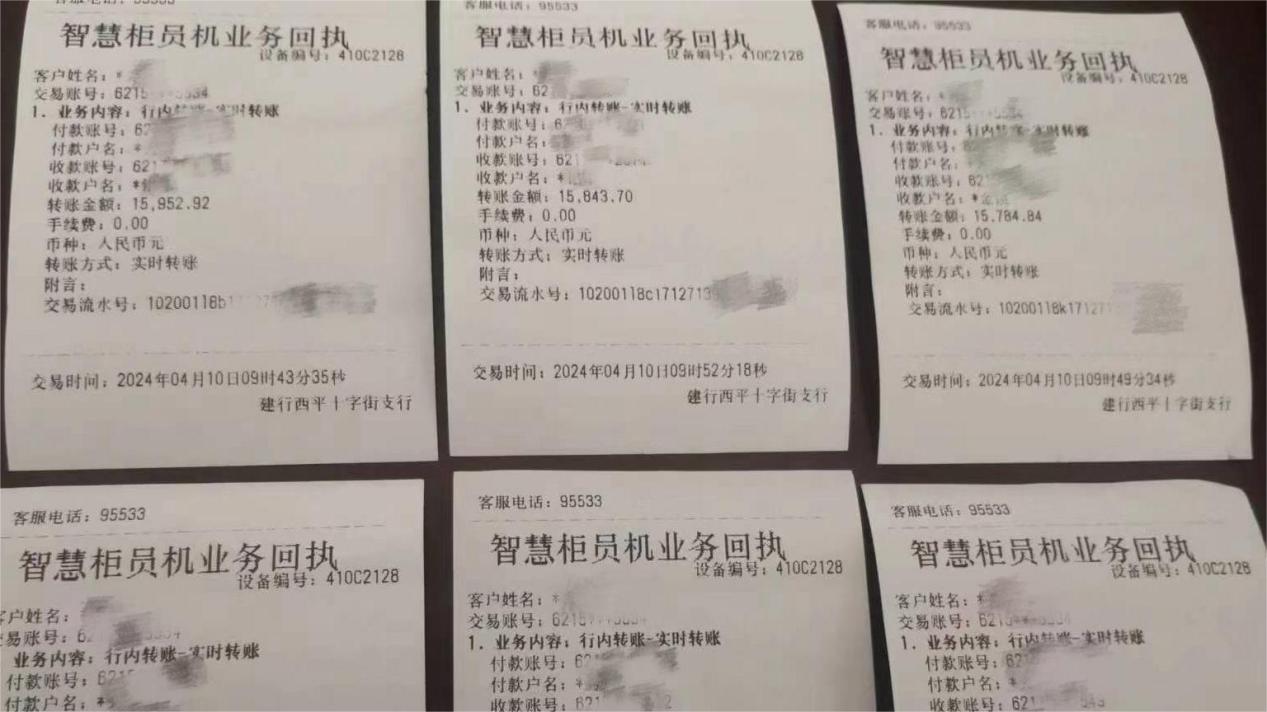 客服电话：95533
智慧柜员机业务回执
设备编号：410C2128
客户姓名：*
交易账号：6215 5534
1. 业务内容：行内转账-实时转账
付款账号：62
付款户名：*
收款账号：621
收款户名：*
转账金额：15,952.92
手续费：0.00
币种：人民币元
转账方式：实时转账
附言：
交易流水号：10200118b1
交易时间：2024年04月10日09时43分35秒
建行西平十字街支行
客服电话：95533
智慧柜员机业务回执
设备编号：410C2128
客户姓名：
交易账号：62
1. 业务内容：行内转账-实时转账
付款账号：6
付款户名：
收款账号：621
收款户名：*
转账金额：15,843.70
手续费：0.00
币种：人民币元
转账方式：实时转账
附言：
交易流水号：10200118c1712713
交易时间：2024年04月10日09时52分18秒
建行西平十字街支行
客服电话：95533
智慧柜员机业务回执
设备编号：410C2128
客户姓名：*
交易账号：6215
1. 业务内容：行内转账-实时转账
付款账号：
付款户名：
收款账号：62
收款户名：*金
转账金额：15,784.84
手续费：0.00
币种：人民币元
转账方式：实时转账
附言：
交易流水号：10200118k171271
交易时间：2024年04月10日09时49分34秒
建行西平十字街支行
客服电话：95533
智慧柜员机业务回执
设备编号：410C2128
客户姓名：
交易账号：62
业务内容：行内转账-实时转账
付款账号：62
付款户名：*
客服电话：95533
智慧柜员机业务回执
设备编号：410C2128
客户姓名：*
交易账号：6215
1. 业务内容：行内转账-实时转账
付款账号：62
付款户名：*
收款账号：621
客服电话：95533
智慧柜员机业务回执
设备编号：410C2128
客户姓名：*
交易账号：6215
1. 业务内容：行内转账-实时转账
付款账号：62
付款户名：*
收款账号：621